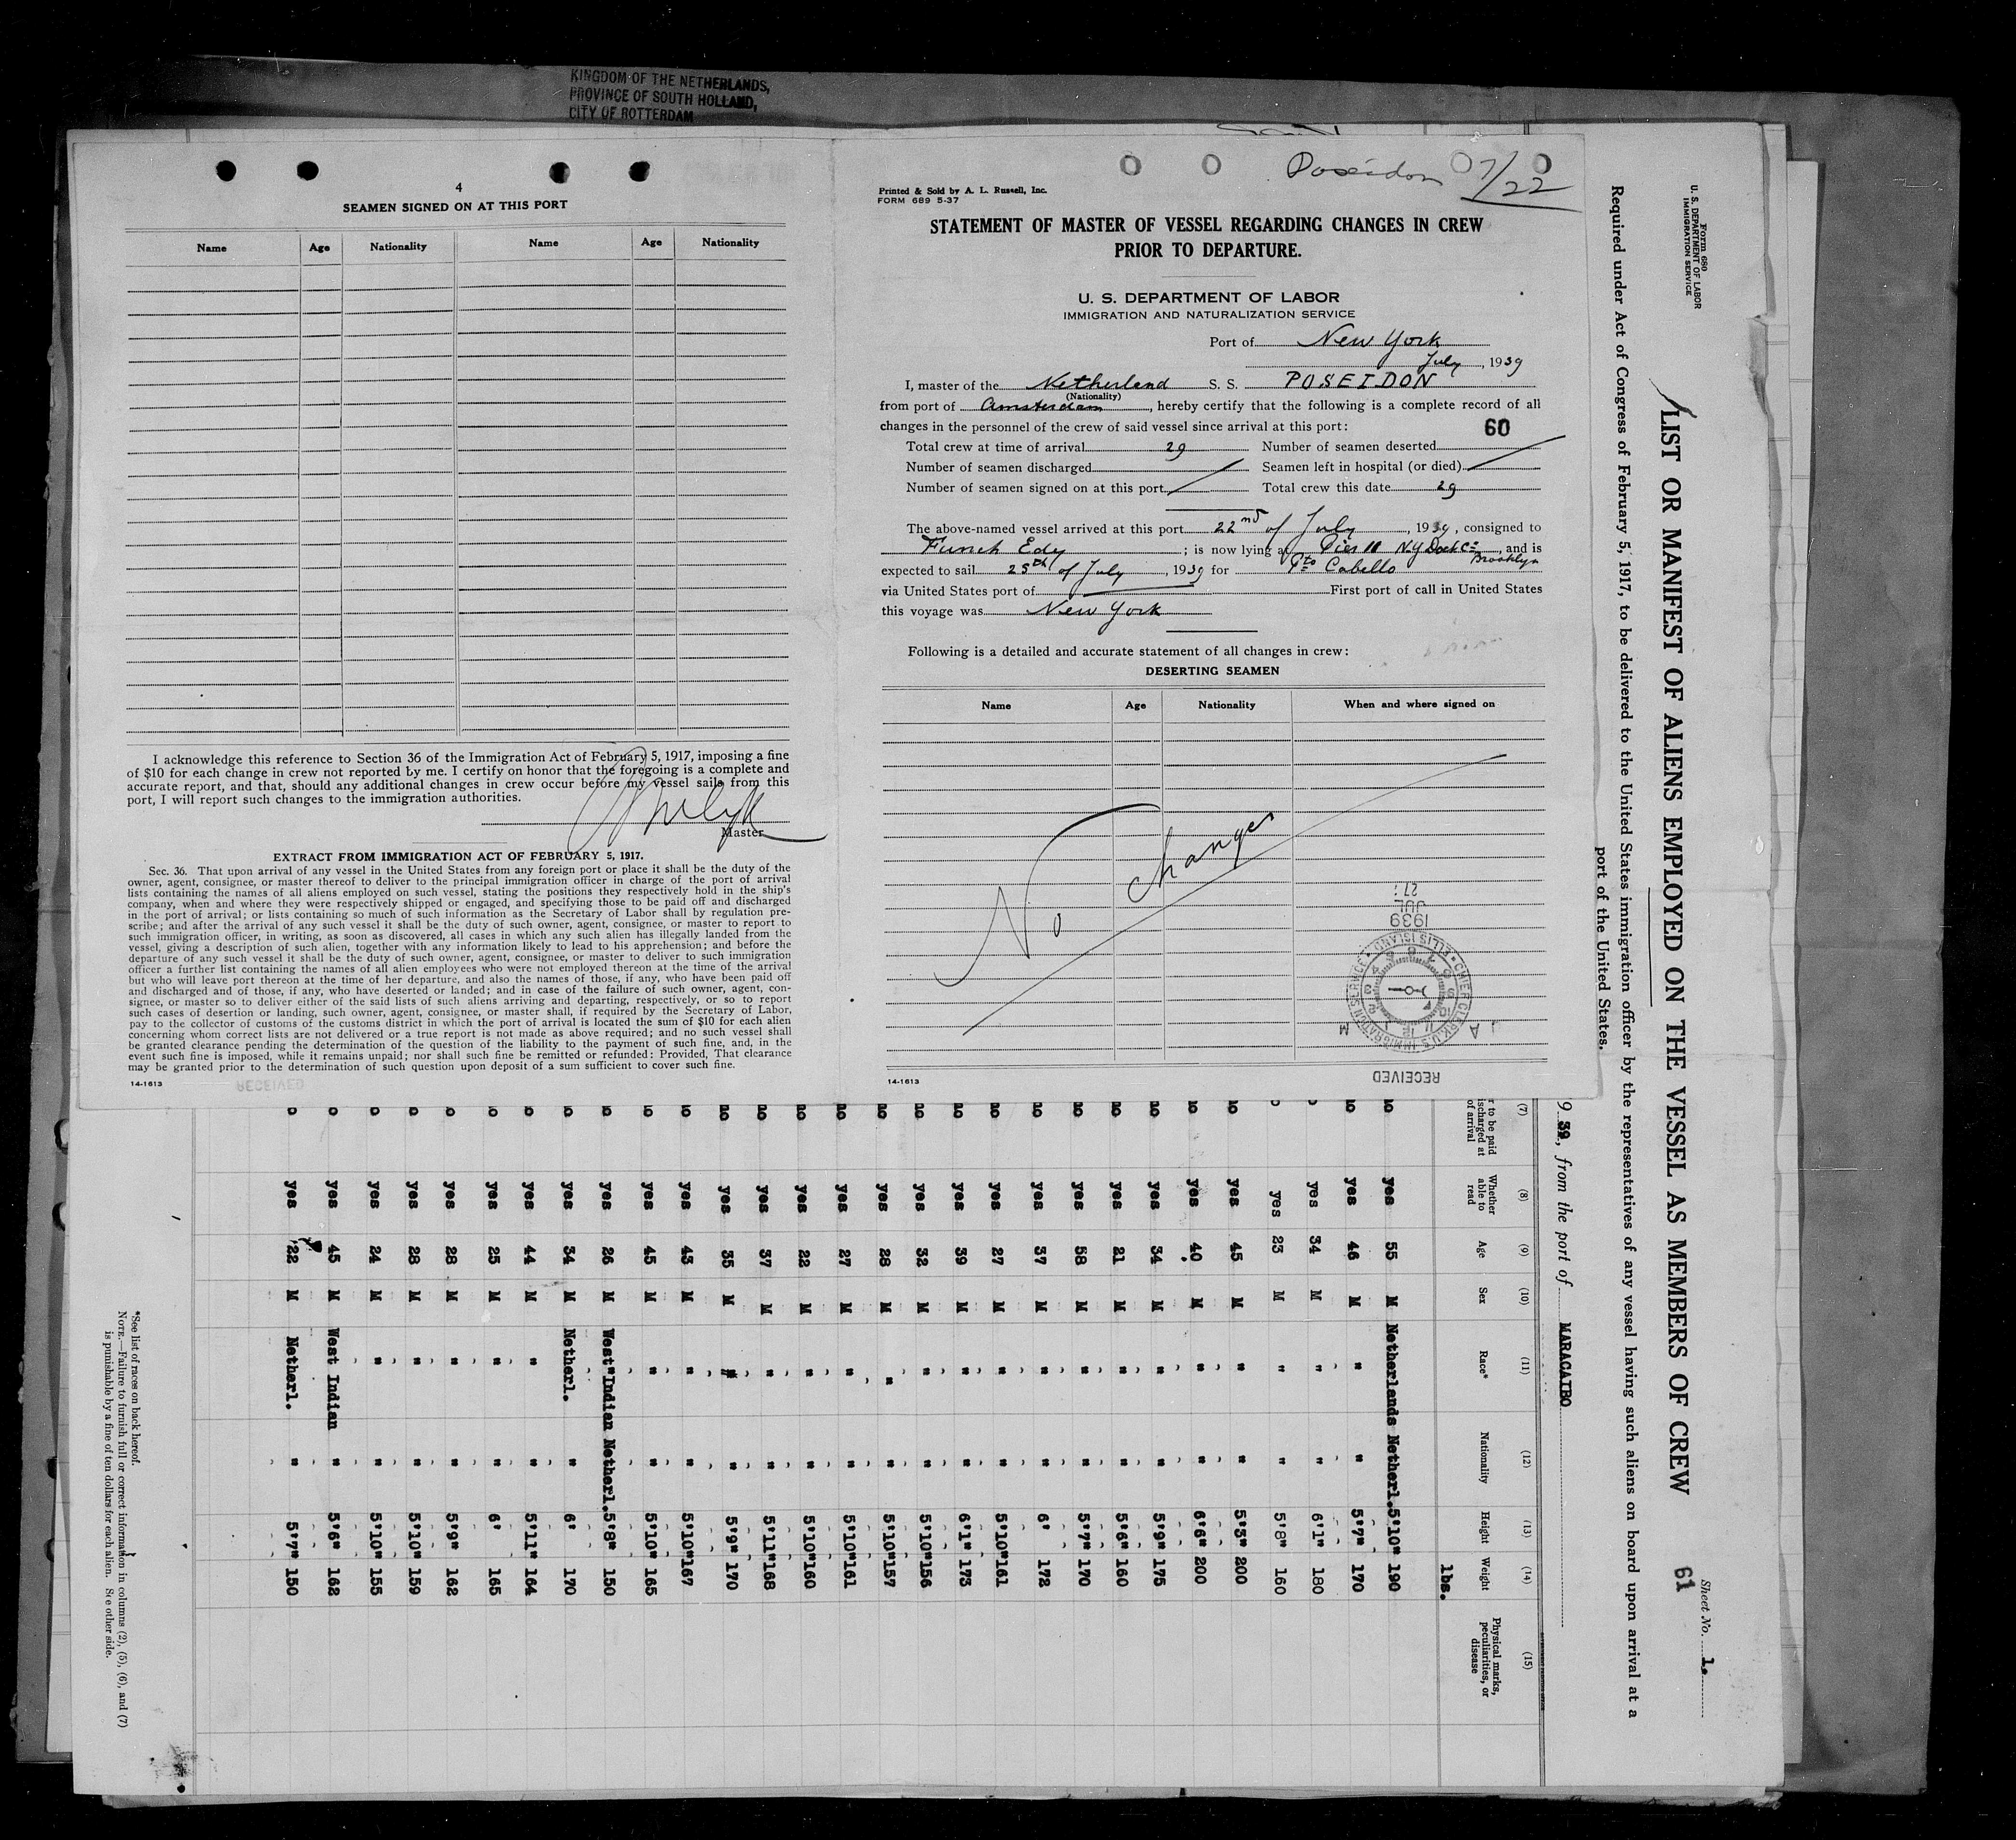 KINGDOM OF THE NETHERLANDS,
PROVINCE OF SOUTH HOLLAND,
CITY OF ROTTERDAM
4
SEAMEN SIGNED ON AT THIS PORT
Name Age Nationality Name Age Nationality
I acknowledge this reference to Section 36 of the Immigration Act of February 5, 1917, imposing a fine
of $10 for each change in crew not reported by me. I certify on honor that the foregoing is a complete and
accurate report, and that, should any additional changes in crew occur before my vessel sails from this
port, I will report such changes to the immigration authorities.
Master
EXTRACT FROM IMMIGRATION ACT OF FEBRUARY 5, 1917.
Sec. 36. That upon arrival of any vessel in the United States from any foreign port or place it shall be the duty of the
owner, agent, consignee, or master thereof to deliver to the principal immigration officer in charge of the port of arrival
lists containing the names of all aliens employed on such vessel, stating the positions they respectively hold in the ship's
company, when and where they were respectively shipped or engaged, and specifying those to be paid off and discharged
in the port of arrival; or lists containing so much of such information as the Secretary of Labor shall by regulation pre-
scribe; and after the arrival of any such vessel it shall be the duty of such owner, agent, consignee, or master to report to
such immigration officer, in writing, as soon as discovered, all cases in which any such alien has illegally landed from the
vessel, giving a description of such alien, together with any information likely to lead to his apprehension; and before the
departure of any such vessel it shall be the duty of such owner, agent, consignee, or master to deliver to such immigration
officer a further list containing the names of all alien employees who were not employed thereon at the time of the arrival
but who will leave port thereon at the time of her departure, and also the names of those, if any, who have been paid off
and discharged and of those, if any, who have deserted or landed; and in case of the failure of such owner, agent, con-
signee, or master so to deliver either of the said lists of such aliens arriving and departing, respectively, or so to report
such cases of desertion or landing, such owner, agent, consignee, or master shall, if required by the Secretary of Labor,
pay to the collector of customs of the customs district in which the port of arrival is located the sum of $10 for each alien
concerning whom correct lists are not delivered or a true report is not made as above required; and no such vessel shall
be granted clearance pending the determination of the question of the liability to the payment of such fine, and, in the
event such fine is imposed, while it remains unpaid; nor shall such fine be remitted or refunded: Provided, That clearance
may be granted prior to the determination of such question upon deposit of a sum sufficient to cover such fine.
14-1613
RECEIVED
Poseidon 7/22
Printed & Sold by A. L. Russell, Inc.
FORM 689 5-37
STATEMENT OF MASTER OF VESSEL REGARDING CHANGES IN CREW
PRIOR TO DEPARTURE.
U. S. DEPARTMENT OF LABOR
IMMIGRATION AND NATURALIZATION SERVICE
Port of New York
July, 1939
I, master of the Netherland S. S. POSEIDON
(Nationality)
from port of Amsterdam, hereby certify that the following is a complete record of all
changes in the personnel of the crew of said vessel since arrival at this port:
60
Total crew at time of arrival 29 Number of seamen deserted
Number of seamen discharged Seamen left in hospital (or died)
Number of seamen signed on at this port Total crew this date 29
The above-named vessel arrived at this port 22nd of July, 1939, consigned to
Funch Edy; is now lying at Pier 11 N.Y Dock Co Brooklyn, and is
expected to sail 25th of July, 1939 for Pto Cabello
via United States port of First port of call in United States
this voyage was New York
Following is a detailed and accurate statement of all changes in crew:
DESERTING SEAMEN
Name Age Nationality When and where signed on
No Changes
RECEIVED
CHIEF CLERK U.S. IMMIGRATION SERVICE ELLIS ISLAND
A M
1939
JUL
27
14-1613
Form 680
U. S. DEPARTMENT OF LABOR
IMMIGRATION SERVICE
Sheet No. 1.
61
LIST OR MANIFEST OF ALIENS EMPLOYED ON THE VESSEL AS MEMBERS OF CREW
Required under Act of Congress of February 5, 1917, to be delivered to the United States immigration officer by the representatives of any vessel having such aliens on board upon arrival at a
port of the United States.
39, from the port of MARACAIBO
(7) (8) (9) (10) (11) (12) (13) (14) (15)
to be paid discharged at of arrival Whether able to read Age Sex Race* Nationality Height Weight Physical marks, peculiarities, or disease
lbs.
no yes 55 M Netherlands Netherl. 5'10" 190
no yes 46 M " " 5'7" 170
yes 34 M " " 6'1" 180
yes 23 M " " 5'8" 160
no yes 45 M " " 5'3" 200
no yes 40 M " " 6'6" 200
no yes 34 M " " 5'9" 175
no yes 21 M " " 5'6" 160
no yes 58 M " " 5'7" 170
no yes 37 M " " 6' 172
no yes 27 M " " 5'10" 161
no yes 39 M " " 6'1" 173
no yes 32 M " " 5'10" 156
no yes 28 M " " 5'10" 157
no yes 27 M " " 5'10" 161
no yes 22 M " " 5'10" 160
no yes 37 M " " 5'11" 168
no yes 35 M " " 5'9" 170
no yes 43 M " " 5'10" 167
no yes 45 M " " 5'10" 165
no yes 26 M West Indian Netherl. 5'8" 150
no yes 34 M Netherl. " 6' 170
no yes 44 M " " 5'11" 164
no yes 25 M " " 6' 165
no yes 28 M " " 5'9" 162
no yes 28 M " " 5'10" 159
yes 24 M " " 5'10" 155
yes 45 M West Indian " 5'6" 162
yes 22 M Netherl. " 5'7" 150
*See list of races on back hereof.
NOTE.—Failure to furnish full or correct information in columns (2), (5), (6), and (7)
is punishable by a fine of ten dollars for each alien. See other side.